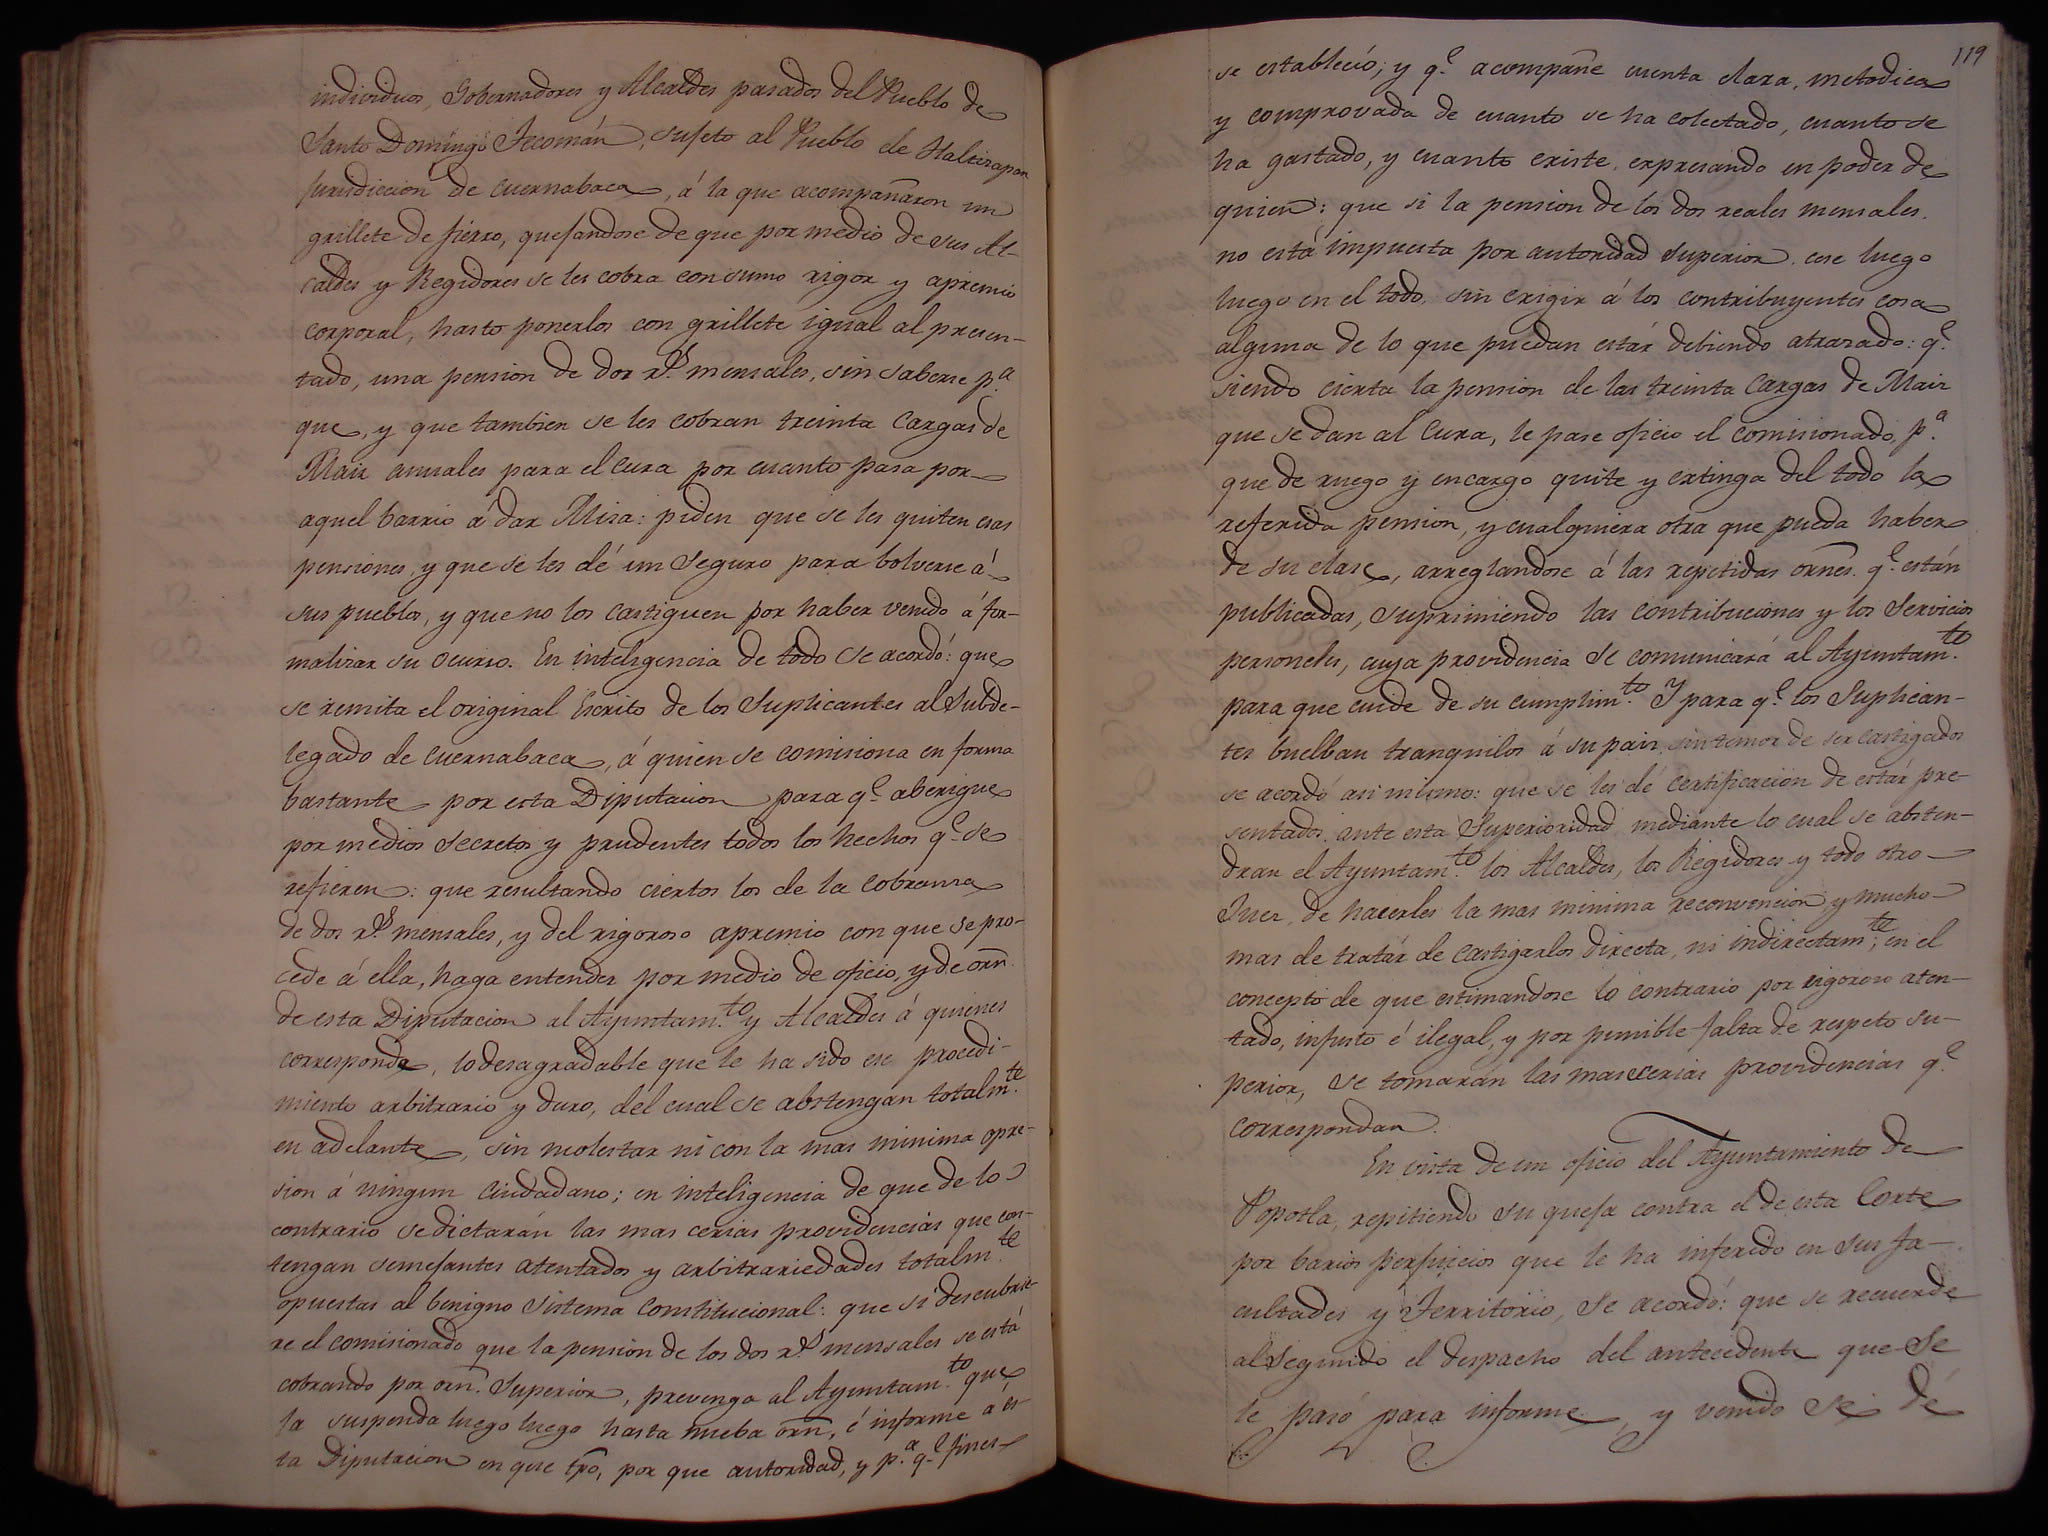 individuos, Gobernadores y Alcaldes pasados del Pueblo de
Santo Domingo Tecomán, sujeto al Pueblo de Tlaltizapan
jurisdiccion de Cuernabaca, á la que acompañaron un
grillete de fierro, quejandose de que por medio de sus Al-
caldes y Regidores se les cobra con sumo rigor y apremio
corporal, hasta ponerlos con grillete igual al presen-
tado, una pension de dos r.s mensales, sin saberse p.a
que, y que tambien se les cobran treinta Cargas de
Maiz anuales para el Cura por cuanto pasa por
aquel barrio á dar Misa: piden que se les quiten esas
pensiones, y que se les dé un Seguro para bolverse á
sus pueblos, y que no los castiguen por haber venido á for-
malizar su ocurso. En inteligencia de todo se acordó: que
se remita el original Escrito de los Suplicantes al Subde-
legado de Cuernabaca, á quien se comisiona en forma
bastante por esta Diputacion para q.e aberigue
por medios Secretos y prudentes todos los hechos q.e se
refieren: que resultando ciertos los de la cobranza
de dos r.s mensales, y del rigoroso apremio con que se pro-
cede á ella, haga entender por medio de oficio, y de orn.
de esta Diputacion al Ayuntam.to y Alcaldes á quienes
corresponda, lo desagradable que le ha sido ese procedi-
miento arbitrario y duro, del cual se abstengan totalm.te
en adelante, sin molestar ni con la mas minima opre-
sion á ningun Ciudadano; en inteligencia de que de lo
contrario se dictarán las mas cerias providencias que con-
tengan semejantes atentados y arbitrariedades totalm.te
opuestas al benigno Sistema Constitucional: que si descubrie-
re el comisionado que la pension de los dos r.s mensales se está
cobrando por orn. Superior, prevenga al Ayuntam.to que
la suspenda luego luego hasta nueba orn, é informe á es-
ta Diputacion en que tpõ, por que autoridad, y p.a q.e fines
119
se estableció; y q.e acompañe cuenta clara, metodica
y comprovada de cuanto se ha colectado, cuanto se
ha gastado, y cuanto existe, expresando en poder de
quien: que si la pension de los dos reales mensales
no está impuesta por autoridad superior, cese luego
luego en el todo, sin exigir á los contribuyentes cosa
alguna de lo que puedan estár debiendo atrasado: q.e
siendo cierta la pension de las treinta Cargas de Maiz
que se dan al Cura, le pase oficio el comisionado, p.a
que de ruego y encargo quite y extinga del todo la
referida pension, y cualquiera otra que pueda haber
de su clase, arreglandose á las repetidas ornes. q.e están
publicadas, suprimiendo las contribuciones y los Servicios
personales, cuya providencia se comunicará al Ayuntam.to
para que cuide de su cumplim.to Y para q.e los Suplican-
tes buelban tranquilos á su pais, sin temor de ser castigados
se acordó asi mismo: que se les dé certificacion de estár pre-
sentados ante esta Superioridad, mediante lo cual se absten-
dran el Ayuntam.to los Alcaldes, los Regidores y todo otro
Juez, de hacerles la mas minima reconvencion y mucho
mas de tratár de castigarlos directa, ni indirectam.te; en el
concepto de que estimandose lo contrario por rigoroso aten-
tado, injusto é ilegal, y por punible falta de respeto su-
perior, se tomarán las mas cerias providencias q.e
correspondan.
En vista de un oficio del Ayuntamiento de
Popotla, repitiendo su queja contra el de esta Corte
por barios perjuicios que le ha inferido en sus fa-
cultades y Territorio, se acordó: que se recuerde
al Segundo el despacho del antecedente que se
le pasó para informe, y venido se dé